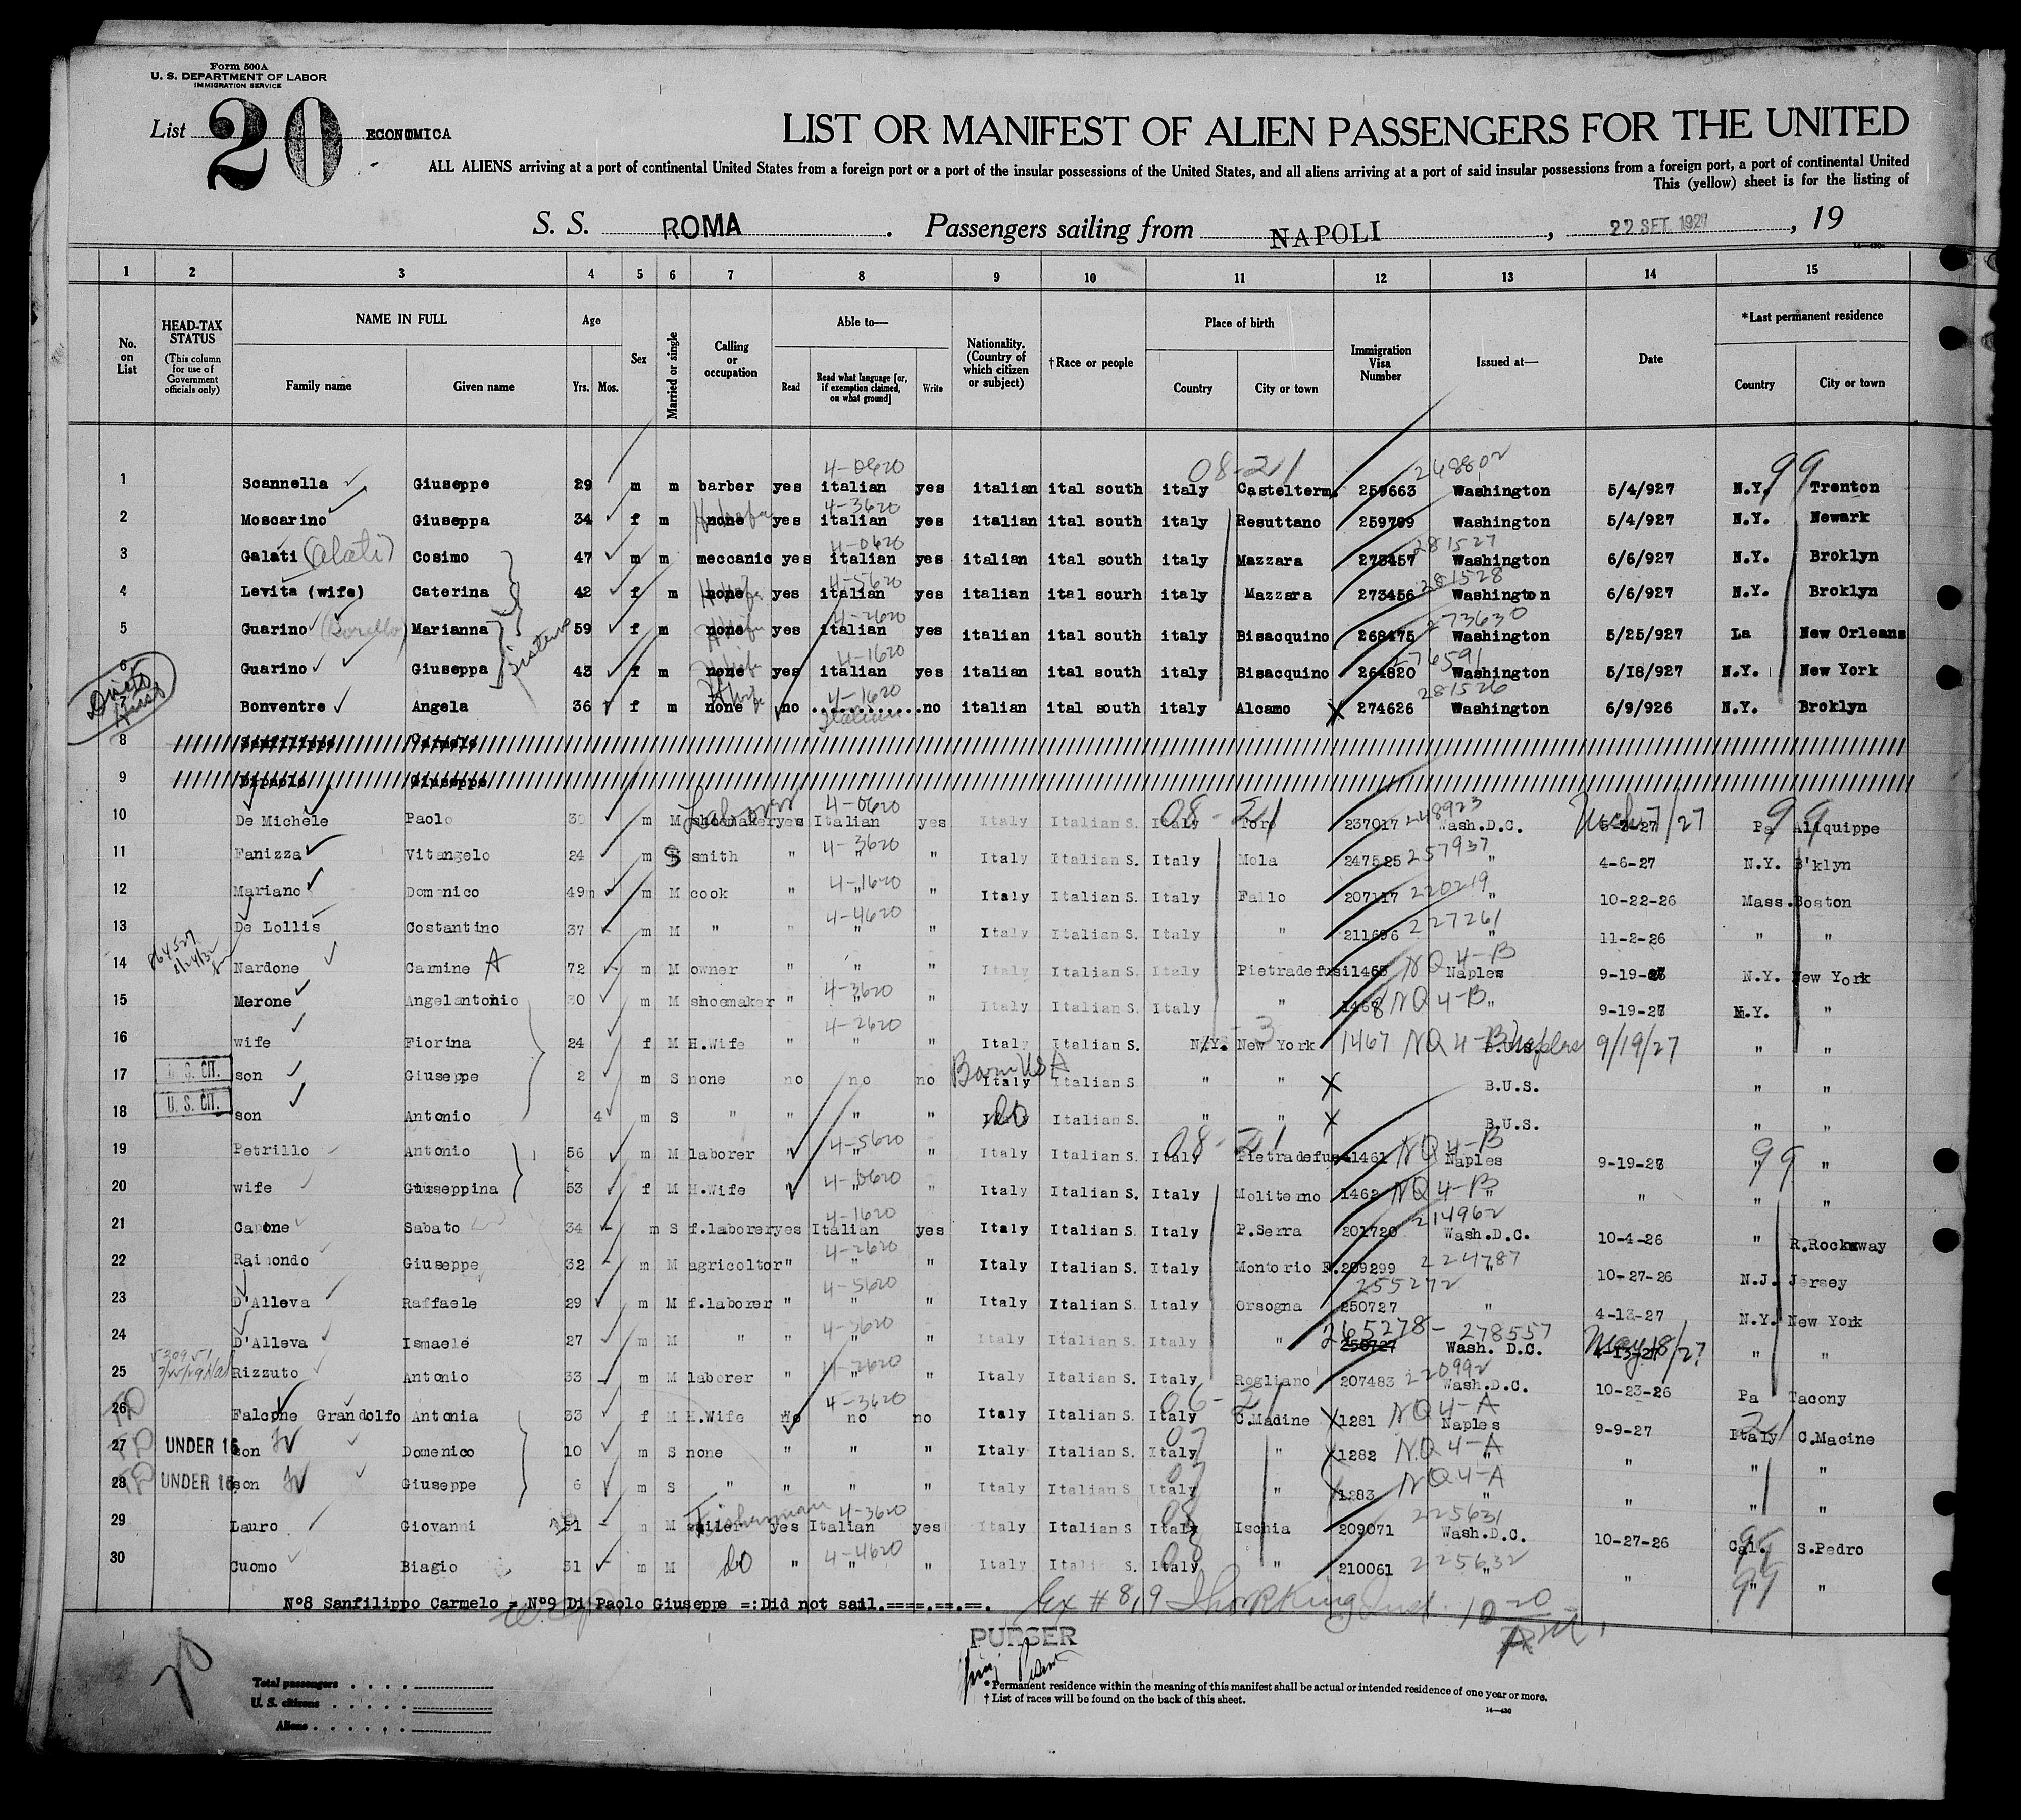 Form 500A
U. S. DEPARTMENT OF LABOR
IMMIGRATION SERVICE
List 20 ECONOMICA
LIST OR MANIFEST OF ALIEN PASSENGERS FOR THE UNITED
ALL ALIENS arriving at a port of continental United States from a foreign port or a port of the insular possessions of the United States, and all aliens arriving at a port of said insular possessions from a foreign port, a port of continental United
This (yellow) sheet is for the listing of
S. S. ROMA. Passengers sailing from NAPOLI, 22 SET. 1927, 19
1 2 3 4 5 6 7 8 9 10 11 12 13 14 15
No. on List
HEAD-TAX STATUS (This column for use of Government officials only)
NAME IN FULL
Family name Given name
Age
Yrs. Mos.
Sex
Married or single
Calling or occupation
Able to—
Read
Read what language [or, if exemption claimed, on what ground]
Write
Nationality. (Country of which citizen or subject)
†Race or people
Place of birth
Country City or town
Immigration Visa Number
Issued at—
Date
*Last permanent residence
Country City or town
4-0620 08-21 248802 99
1 Scannella Giuseppe 29 m m barber yes italian yes italian ital south italy Castelterm. 259663 Washington 5/4/927 N.Y. Trenton
4-3620
2 Moscarino Giuseppa 34 f m none yes italian yes italian ital south italy Resuttano 259799 Washington 5/4/927 N.Y. Newark
4-0620 281527
3 Galati (Alati) Cosimo 47 m m meccanic yes italian yes italian ital south italy Mazzara 273457 Washington 6/6/927 N.Y. Broklyn
4-5620 281528
4 Levita (wife) Caterina 42 f m none yes italian yes italian ital sourh italy Mazzara 273456 Washington 6/6/927 N.Y. Broklyn
4-2620 273630
5 Guarino (Borello) Marianna 59 f m none yes italian yes italian ital south italy Bisacquino 268475 Washington 5/25/927 La New Orleans
sisters
4-1620 276591
6 Guarino Giuseppa 43 f m none yes italian yes italian ital south italy Bisacquino 264820 Washington 5/18/927 N.Y. New York
4-1620 281526
7 Bonventre Angela 36 f m none no Italian no italian ital south italy Alcamo 274626 Washington 6/9/926 N.Y. Broklyn
8 Sanfilippo Carmelo
9 Dipaolo Giuseppe
Laborer 4-0620 08-21 248923 99
10 De Michele Paolo 30 m M shoemaker yes Italian yes Italy Italian S. Italy Toro 237017 Wash.D.C. Pa Aliquippe
4-3620 257937
11 Fanizza Vitangelo 24 m S smith " " " Italy Italian S. Italy Mola 247525 " 4-6-27 N.Y. B'klyn
4-1620 220219
12 Mariano Domenico 49 m M cook " " " Italy Italian S. Italy Fallo 207117 " 10-22-26 Mass. Boston
4-4620 227261
13 De Lollis Costantino 37 m M " " " " Italy Italian S. Italy " 211696 " 11-2-26 " "
NQ 4-B
14 Nardone Carmine A 72 m M owner " " " Italy Italian S. Italy Pietradefusi 1465 Naples 9-19-26 N.Y. New York
4-3620 NQ 4-B
15 Merone Angelantonio 30 m M shoemaker " " " Italy Italian S. Italy " 1468 " 9-19-27 N.Y. "
4-2620
16 wife Fiorina 24 f M H.Wife " " " Italy Italian S. N.Y. New York 1467 NQ 4-B B.U.S. Naples 9/19/27 " "
Born USA
17 U. S. CIT. son Giuseppe 2 m S none no no no Italy Italian S " " B.U.S. " "
18 U. S. CIT. son Antonio 4 m S " " " " do Italian S. " " B.U.S. " "
4-5620 08-21 NQ 4-B 99
19 Petrillo Antonio 56 m M laborer " " " Italy Italian S. Italy Pietradefus 1461 Naples 9-19-26 " "
4-0620 NQ 4-B
20 wife Giuseppina 53 f M H.Wife " " " Italy Italian S. Italy Moliterno 1462 " " " "
4-1620 214962
21 Capone Sabato 34 m S f.laborer yes Italian yes Italy Italian S. Italy P.Serra 201720 Wash.D.C. 10-4-26 " R.Rockaway
4-2620 224787
22 Raimondo Giuseppe 32 m M agricoltor " " " Italy Italian S. Italy Montorio F. 209299 " 10-27-26 N.J. Jersey
4-5620 255272
23 D'Alleva Raffaele 29 m M f.laborer " " " Italy Italian S. Italy Orsogna 250727 " 4-13-27 N.Y. New York
4-3620 265278 - 278557 May 18/27
24 D'Alleva Ismaele 27 m M " " " " Italy Italian S. Italy " 250727 Wash. D.C. 4-13-27 " "
4-2620 220992
25 Rizzuto Antonio 33 m M laborer " " " Italy Italian S. Italy Rogliano 207483 Wash.D.C. 10-23-26 Pa Tacony
4-3620 06-21 NQ 4-A
26 Falcone Grandolfo Antonia 33 f M H.Wife no no no Italy Italian S. Italy C.Macine 1281 Naples 9-9-27 Italy C.Macine
27 UNDER 16 son Domenico 10 m S none " " " Italy Italian S. Italy " 1282 NQ 4-A " " " "
28 UNDER 16 son Giuseppe 6 m S " " " " Italy Italian S Italy " 1283 NQ 4-A " " " "
Fisherman 4-3620 08 225631
29 Lauro Giovanni 51 m M sailer yes Italian yes Italy Italian S Italy Ischia 209071 Wash.D.C. 10-27-26 Cal. S.Pedro
4-4620 08 225632
30 Cuomo Biagio 31 m M do " " " Italy Italian S. Italy " 210061 " " " "
Nº8 Sanfilippo Carmelo = Nº9 Di Paolo Giuseppe =:Did not sail.====.==.==. Ex # 8,9
PURSER
20
Total passengers
U. S. citizens
Aliens
* Permanent residence within the meaning of this manifest shall be actual or intended residence of one year or more.
† List of races will be found on the back of this sheet.
14—430